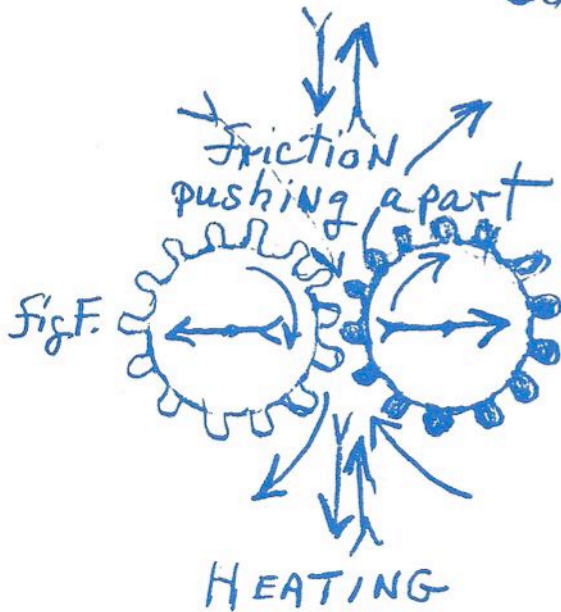 friction
pushing apart
fig F.
HEATING